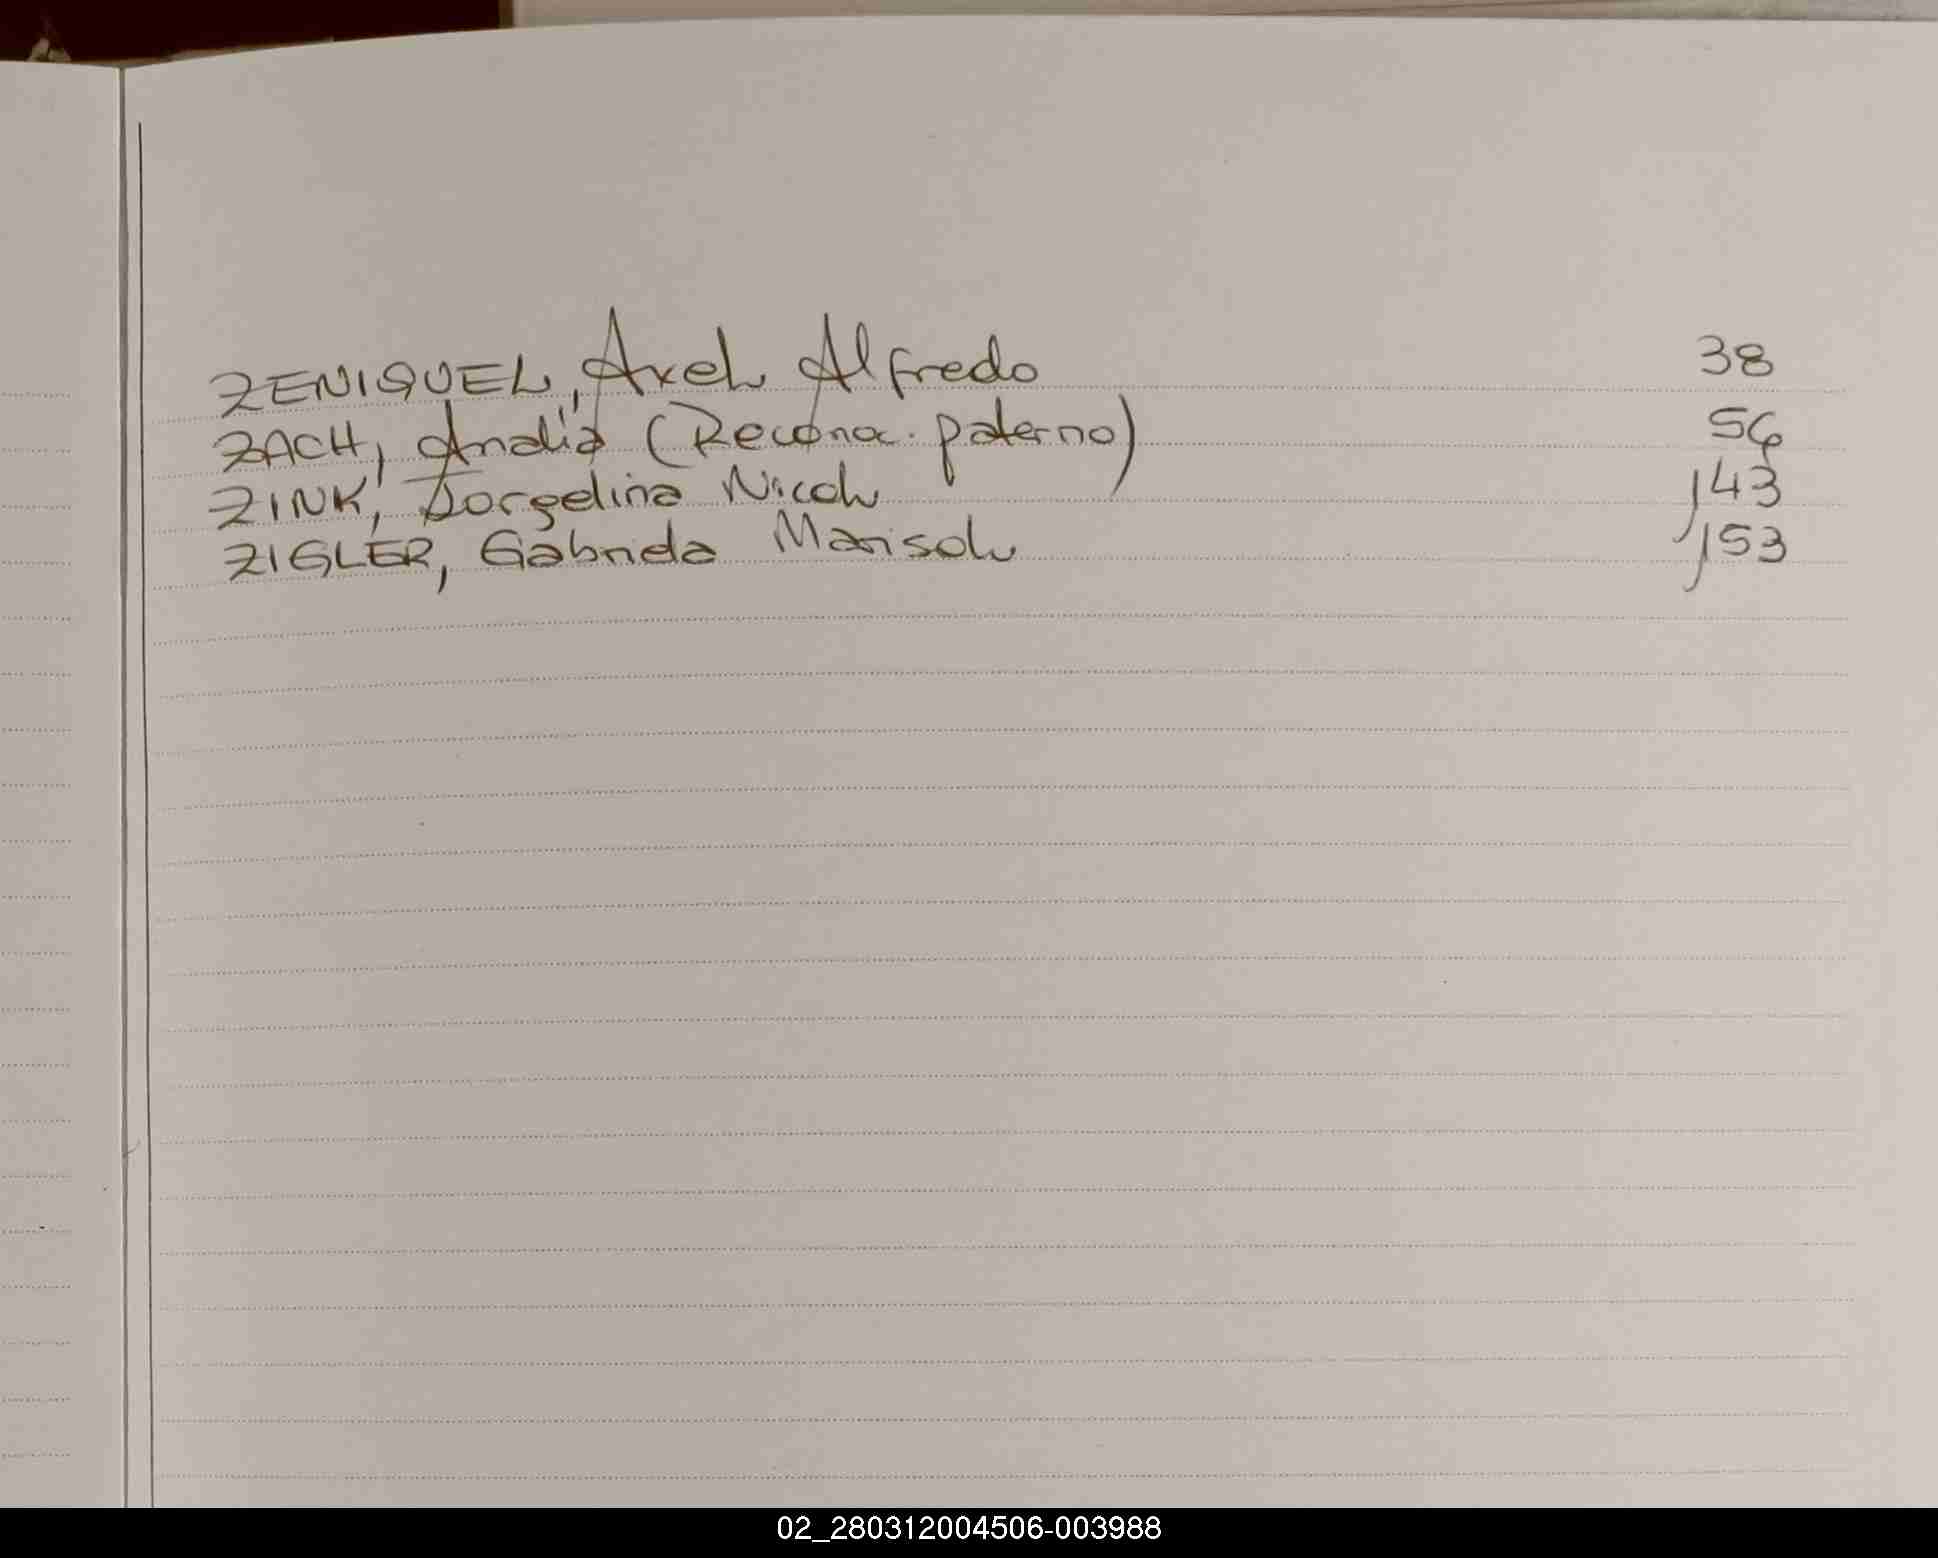 ZENIQUEL, Axel Alfredo 38
ZACH, Analía (Reconoc. paterno) 56
ZINK, Jorgelina Nicol 143
ZIGLER, Gabriela Marisol 153
02_280312004506-003988